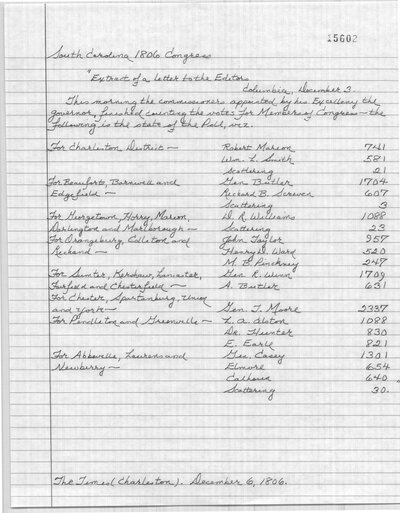 15602
South Carolina 1806 Congress
"Extract of a letter to the Editors
Columbia, December 3.
This morning the commissioners appointed by his Excellency the
governor, finished counting the votes for Members of Congress - the
following is the state of the Poll, viz.
For Charleston District - Robert Marion 741
Wm. L. Smith 581
Scattering 21
For Beaufort, Barnwell and Gen. Butler 1704
Edgefield - Richard B. Screven 607
Scattering 3
For Georgetown, Horry, Marion, D. R. Williams 1088
Darlington and Marlborough - Scattering 23
For Orangeburg, Colleton and John Taylor 957
Richand - Henry D. Ward 520
M. B. Pinckney 247
For Sumter, Kershaw, Lancaster, Gen. R. Winn 1709
Fairfield and Chesterfield - A. Butler 631
For Chester, Spartanburg, Union
and York - Gen. T. Moore 2337
For Pendleton and Greenville - L. A. Alston 1088
Dr. Hunter 830
E. Earle 821
For Abbeville, Laurens and Gen. Casey 1301
Newberry - Elmore 654
Calhoun 640
Scattering 30. "
The Times (Charleston). December 6, 1806.